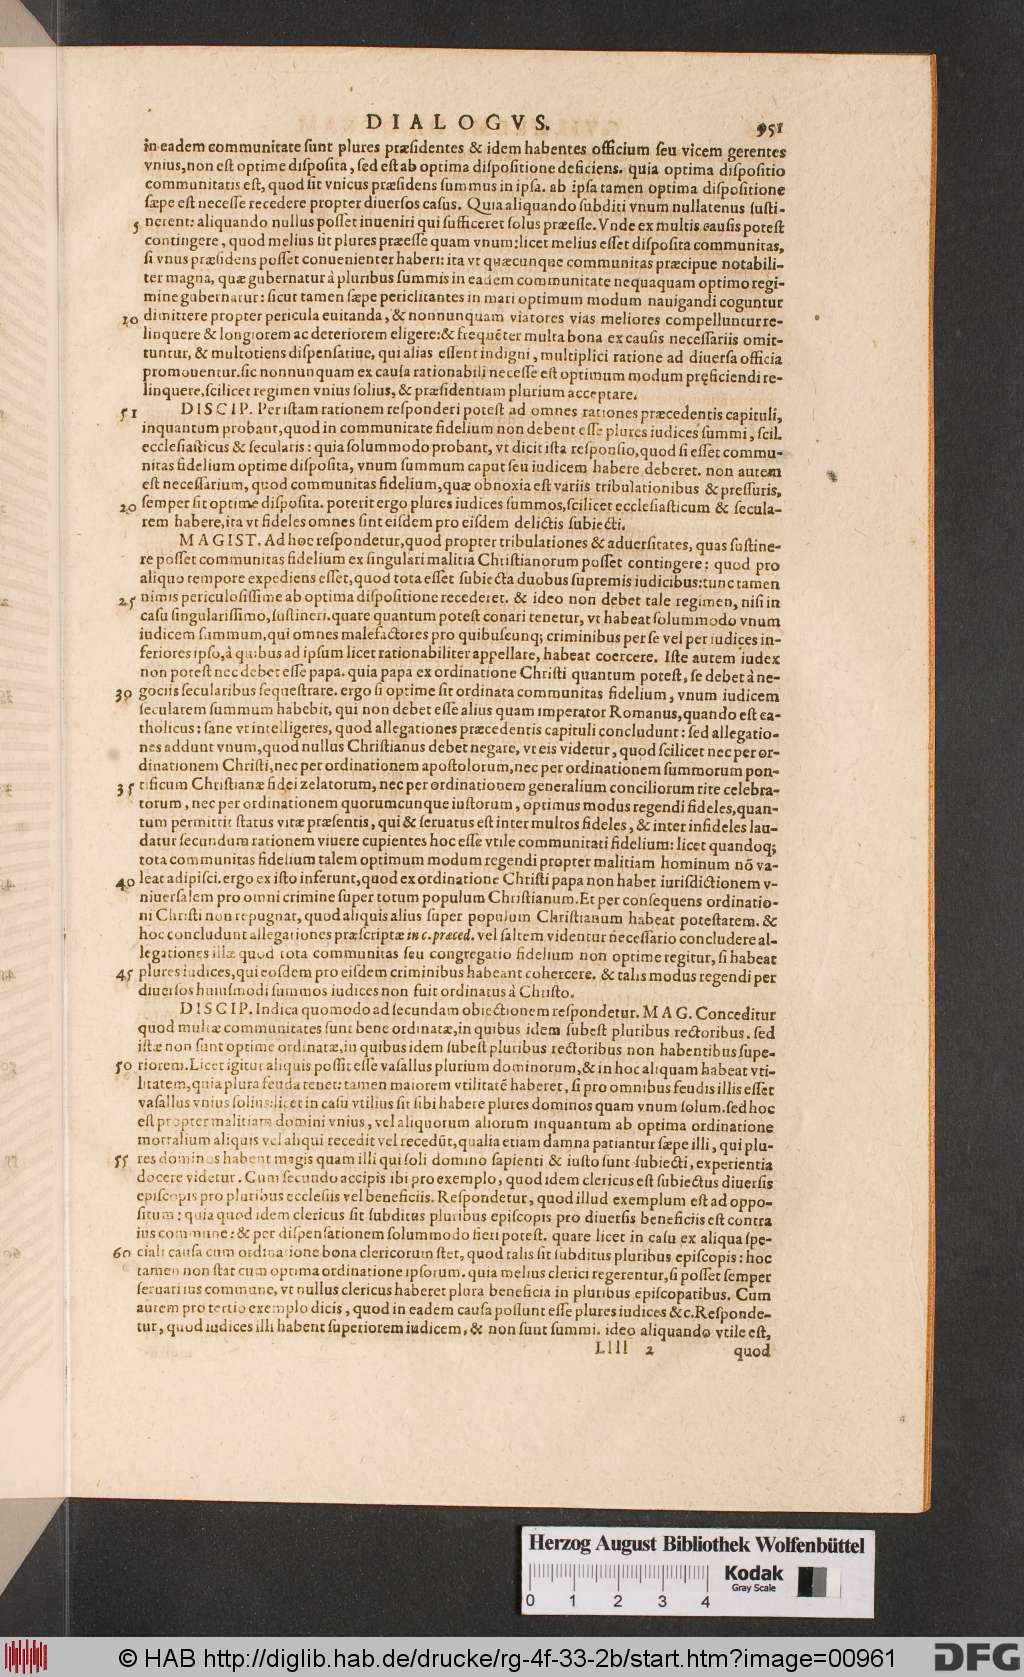 DIALOGVS. 951
in eadem communitate sunt plures præsidentes & idem habentes officium seu vicem gerentes
vnius, non est optime disposita, sed est ab optima dispositione deficiens. quia optima dispositio
communitatis est, quod sit vnicus præsidens summus in ipsa. ab ipsa tamen optima dispositione
sæpe est necesse recedere propter diuersos casus. Quia aliquando subditi vnum nullatenus susti-
5 nerent: aliquando nullus posset inueniri qui sufficeret solus præesse. Vnde ex multis causis potest
contingere, quod melius sit plures præesse quam vnum: licet melius esset disposita communitas,
si vnus præsidens posset conuenienter haberi: ita vt quæcunque communitas præcipue notabili-
ter magna, quæ gubernatur à pluribus summis in eadem communitate nequaquam optimo regi-
mine gubernatur: sicut tamen sæpe periclitantes in mari optimum modum nauigandi coguntur
10 dimittere propter pericula euitanda, & nonnunquam viatores vias meliores compelluntur re-
linquere & longiorem ac deteriorem eligere: & frequẽter multa bona ex causis necessariis omit-
tuntur, & multotiens dispensatiue, qui alias essent indigni, multiplici ratione ad diuersa officia
promouentur. sic nonnunquam ex causa rationabili necesse est optimum modum pręficiendi re-
linquere, scilicet regimen vnius solius, & præsidentiam plurium acceptare.
51 DISCIP. Per istam rationem responderi potest ad omnes rationes præcedentis capituli,
inquantum probant, quod in communitate fidelium non debent esse plures iudices summi, scil.
ecclesiasticus & secularis: quia solummodo probant, vt dicit ista responsio, quod si esset commu-
nitas fidelium optime disposita, vnum summum caput seu iudicem habere deberet. non autem
est necessarium, quod communitas fidelium, quæ obnoxia est variis tribulationibus & pressuris,
20 semper sit optime disposita. poterit ergo plures iudices summos, scilicet ecclesiasticum & secula-
rem habere, ita vt fideles omnes sint eisdem pro eisdem delictis subiecti.
MAGIST. Ad hoc respondetur, quod propter tribulationes & aduersitates, quas sustine-
re posset communitas fidelium ex singulari malitia Christianorum posset contingere: quod pro
aliquo tempore expediens esset, quod tota esset subiecta duobus supremis iudicibus: tunc tamen
25 nimis periculosissime ab optima dispositione recederet. & ideo non debet tale regimen, nisi in
casu singularissimo, sustineri. quare quantum potest conari tenetur, vt habeat solummodo vnum
iudicem summum, qui omnes malefactores pro quibuscunq; criminibus per se vel per iudices in-
feriores ipso, à quibus ad ipsum licet rationabiliter appellare, habeat coercere. Iste autem iudex
non potest nec debet esse papa. quia papa ex ordinatione Christi quantum potest, se debet à ne-
30 gociis secularibus sequestrare. ergo si optime sit ordinata communitas fidelium, vnum iudicem
secularem summum habebit, qui non debet esse alius quam imperator Romanus, quando est ca-
tholicus: sane vt intelligeres, quod allegationes præcedentis capituli concludunt: sed allegatio-
nes addunt vnum, quod nullus Christianus debet negare, vt eis videtur, quod scilicet nec per or-
dinationem Christi, nec per ordinationem apostolorum, nec per ordinationem summorum pon-
35 tificum Christianæ fidei zelatorum, nec per ordinationem generalium conciliorum rite celebra-
torum, nec per ordinationem quorumcunque iustorum, optimus modus regendi fideles, quan-
tum permittit status vitæ præsentis, qui & seruatus est inter multos fideles, & inter infideles lau-
datur secundum rationem viuere cupientes hoc esse vtile communitati fidelium: licet quandoq;
tota communitas fidelium talem optimum modum regendi propter malitiam hominum nõ va-
40 leat adipisci. ergo ex isto inferunt, quod ex ordinatione Christi papa non habet iurisdictionem v-
niuersalem pro omni crimine super totum populum Christianum. Et per consequens ordinatio-
ni Christi non repugnat, quod aliquis alius super populum Christianum habeat potestatem. &
hoc concludunt allegationes præscriptæ in c. præced. vel saltem videntur necessario concludere al-
legationes illæ quod tota communitas seu congregatio fidelium non optime regitur, si habeat
45 plures iudices, qui eosdem pro eisdem criminibus habeant cohercere. & talis modus regendi per
diuersos huiusmodi summos iudices non fuit ordinatus à Christo.
DISCIP. Indica quomodo ad secundam obiectionem respondetur. MAG. Conceditur
quod multæ communitates sunt bene ordinatæ, in quibus idem subest pluribus rectoribus. sed
istæ non sunt optime ordinatæ, in quibus idem subest pluribus rectoribus non habentibus supe-
50 riorem. Licet igitur aliquis possit esse vasallus plurium dominorum, & in hoc aliquam habeat vti-
litatem, quia plura feuda tenet: tamen maiorem vtilitatẽ haberet, si pro omnibus feudis illis esset
vasallus vnius solius: licet in casu vtilius sit sibi habere plures dominos quam vnum solum. sed hoc
est propter malitiam domini vnius, vel aliquorum aliorum inquantum ab optima ordinatione
mortalium aliquis vel aliqui recedit vel recedũt, qualia etiam damna patiantur sæpe illi, qui plu-
55 res dominos habent magis quam illi qui soli domino sapienti & iusto sunt subiecti, experientia
docere videtur. Cum secundo accipis ibi pro exemplo, quod idem clericus est subiectus diuersis
episcopis pro pluribus ecclesiis vel beneficiis. Respondetur, quod illud exemplum est ad oppo-
situm: quia quod idem clericus sit subditus pluribus episcopis pro diuersis beneficiis est contra
ius commune: & per dispensationem solummodo fieri potest. quare licet in casu ex aliqua spe-
60 ciali causa cum ordinatione bona clericorum stet, quod talis sit subditus pluribus episcopis: hoc
tamen non stat cum optima ordinatione ipsorum. quia melius clerici regerentur, si posset semper
seruari ius commune, vt nullus clericus haberet plura beneficia in pluribus episcopatibus. Cum
autem pro tertio exemplo dicis, quod in eadem causa possunt esse plures iudices &c. Responde-
tur, quod iudices illi habent superiorem iudicem, & non sunt summi. ideo aliquando vtile est,
Llll 2 quod
Herzog August Bibliothek Wolfenbüttel
Kodak
Gray Scale
0 1 2 3 4
© HAB http://diglib.hab.de/drucke/rg-4f-33-2b/start.htm?image=00961
DFG